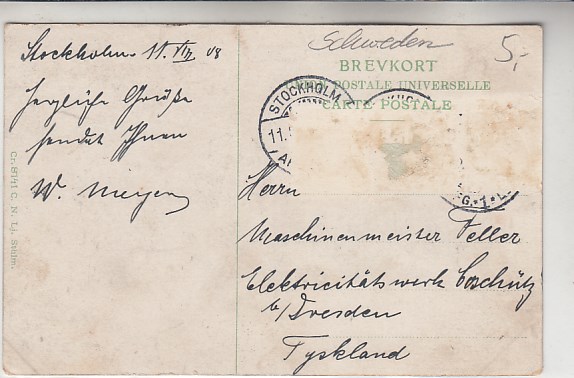 Schweden
5,-
BREVKORT
UNION POSTALE UNIVERSELLE
CARTE POSTALE
STOCKHOLM
11.
Stockholm 11. VII 08
Herzliche Grüße
sendet Ihnen
W. Meyer
Herrn
Maschinenmeister Feller
Elektricitätswerk Coschütz
b/Dresden
Tyskland